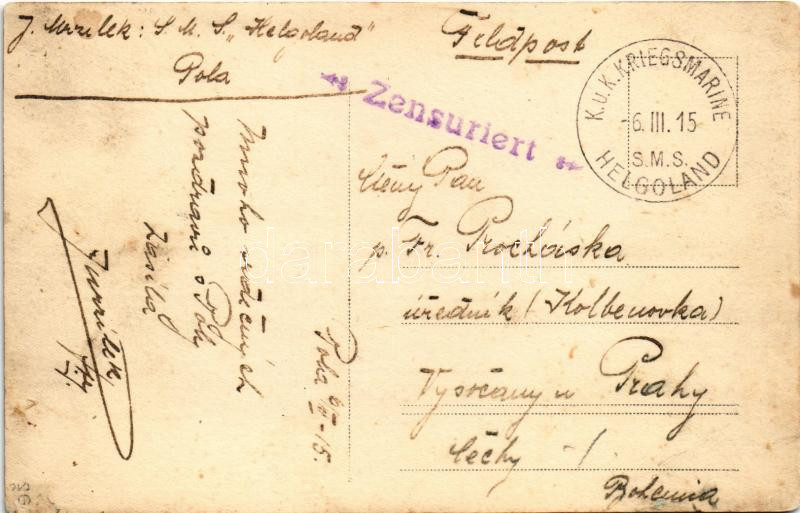 J. Mrzilek: S. M. S. „Helgoland"
Pola
Feldpost
Zensuriert
K.u.K. KRIEGSMARINE
-6.III.15
S.M.S.
HELGOLAND
Ctěný Pan
p. Fr. Procháska
úředník (Kolbenovka)
Vysočany u Prahy
Čechy -/
Bohemia
Mnoho srdečných
pozdravů s Poly
zasílá
Pola 6/III-15.
darabanth